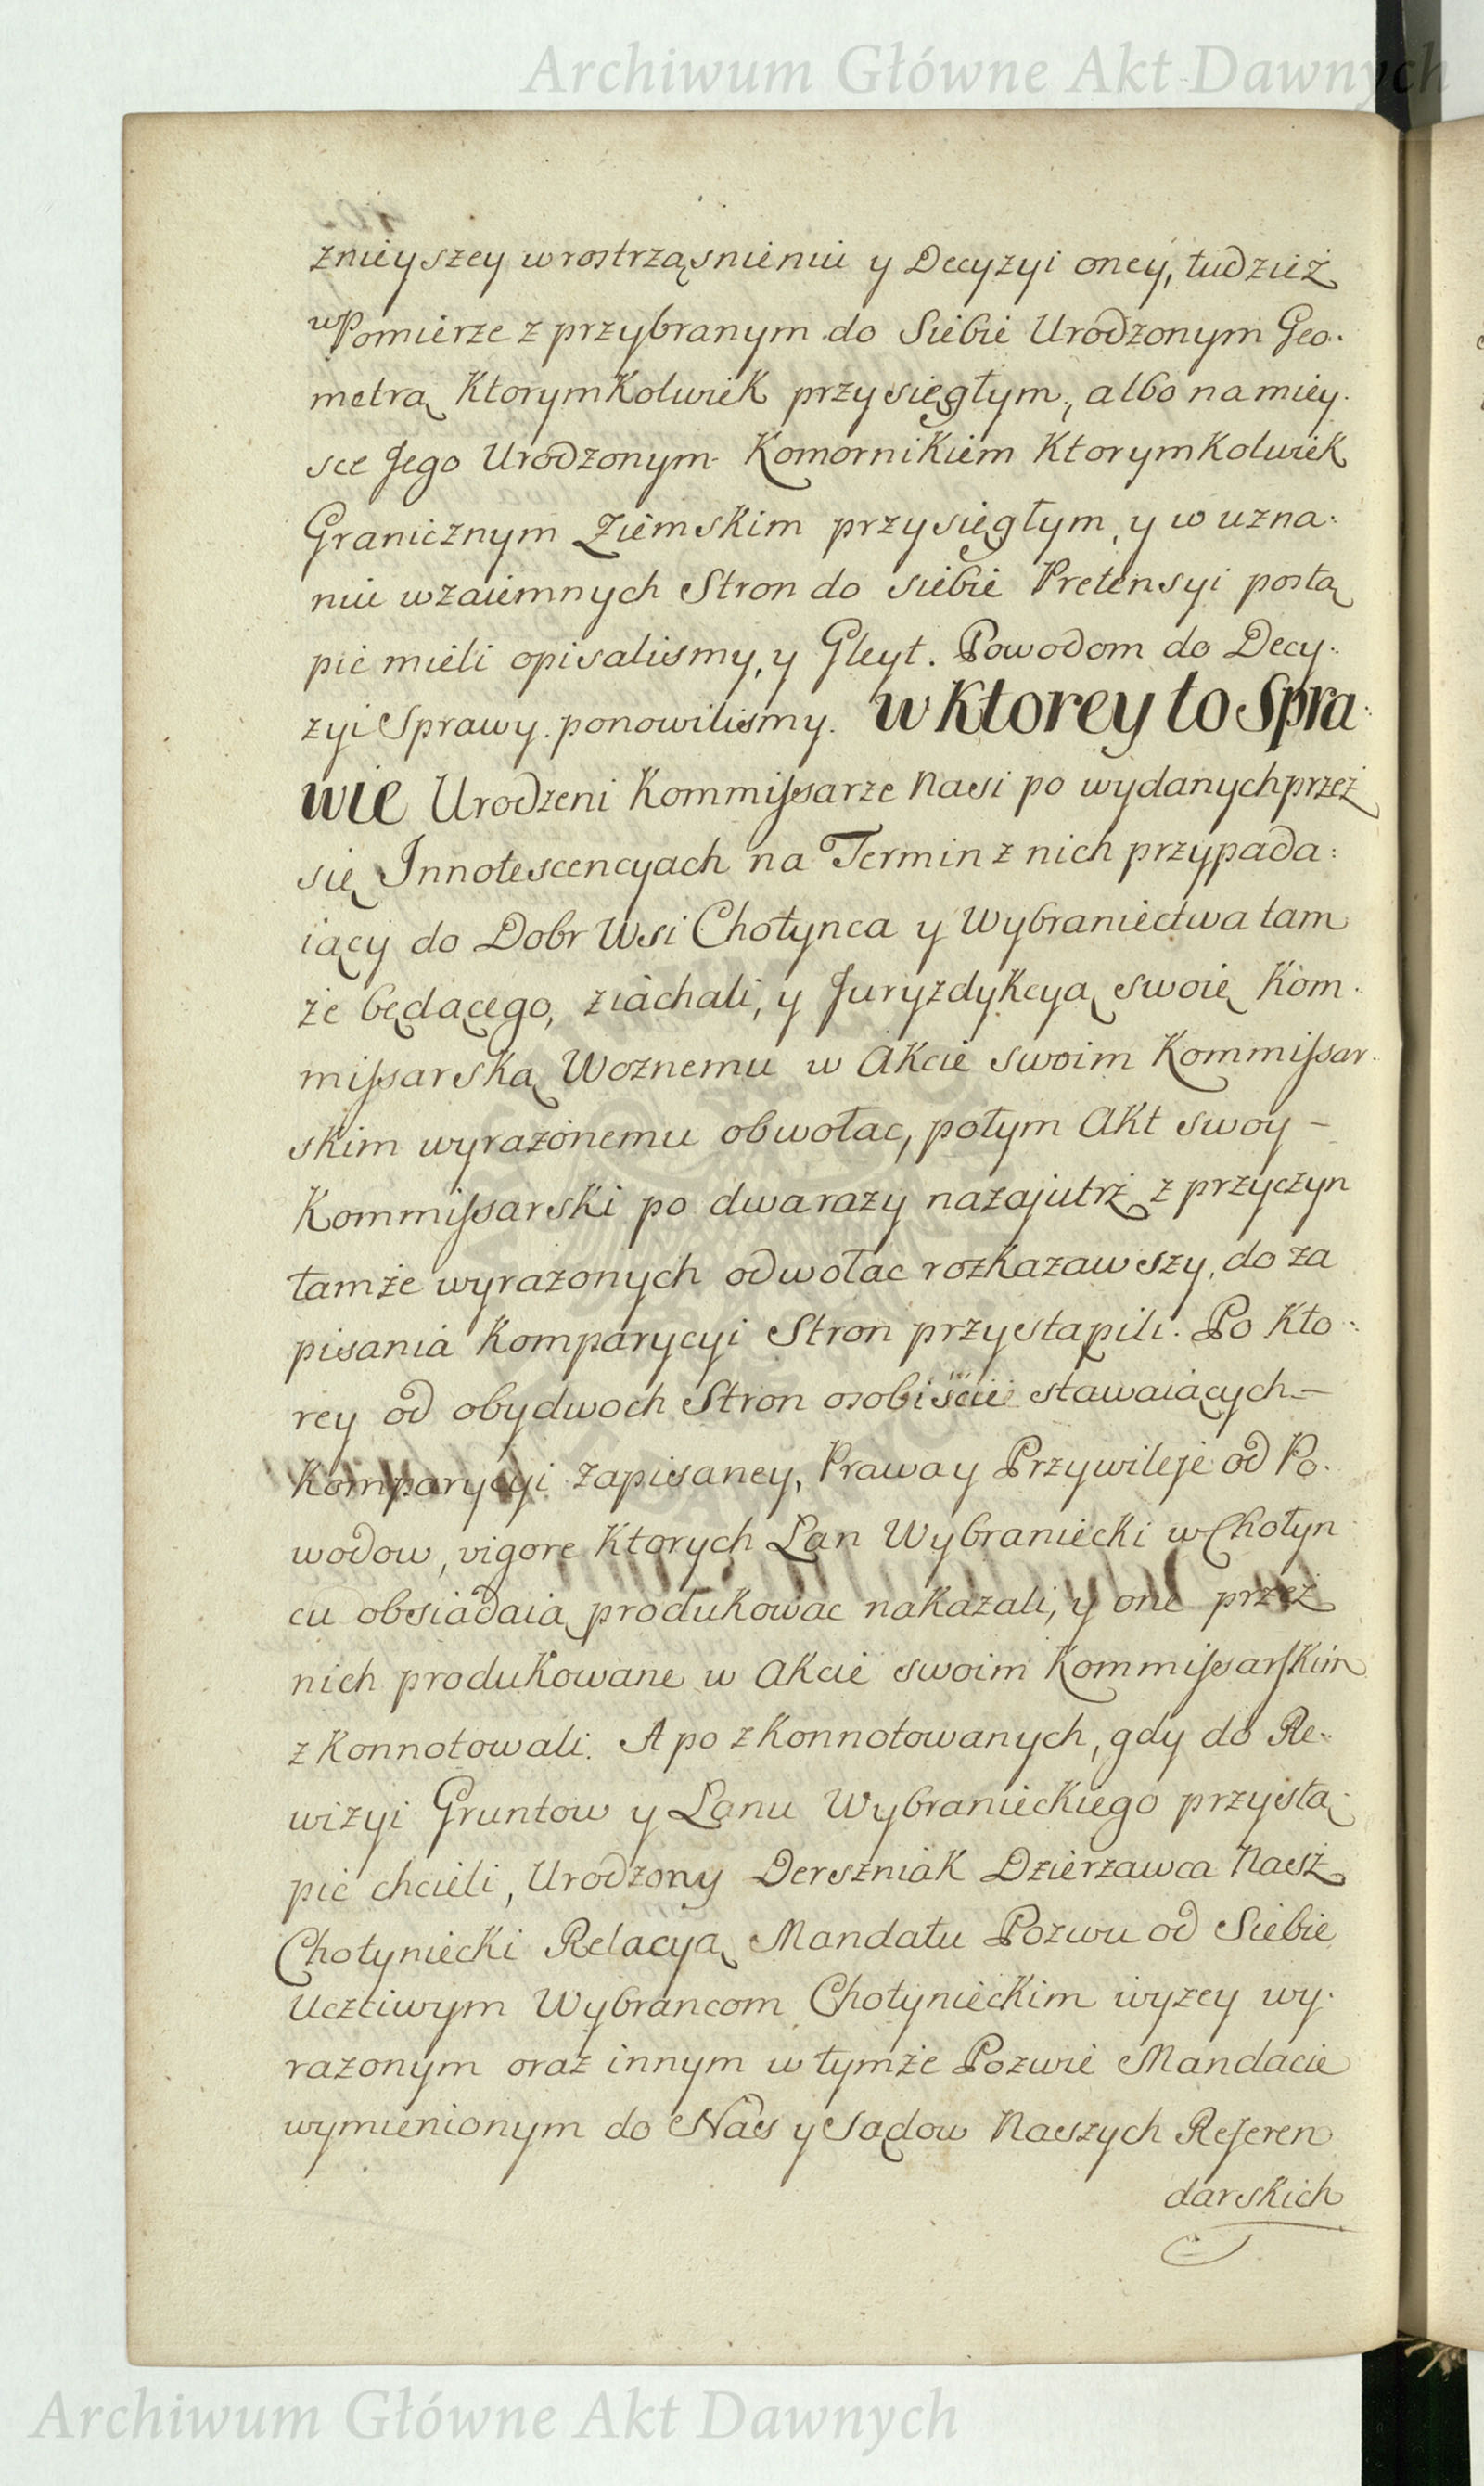 Archiwum Główne Akt Dawnych
znieyszey w rostrząsnieniu y Decyzyi oney, tudzież
w Pomierze z przybranym do Siebie Urodzonym Geo.
metrą Ktorymkolwiek przysięgłym, albo na miey.
sce Jego Urodzonym Komornikiem Ktorymkolwiek
Granicznym Ziemskim przysięgłym, y w uzna:
niu wzaiemnych Stron do siebie Pretensyi postą
pić mieli opisalismy, y Gleyt. Powodom do Decy:
zyi Sprawy ponowilismy. w Ktorey to Spra:
wie Urodzeni Kommissarze Nasi po wydanych przez
się Innotescencyach na Termin z nich przypada:
iący do Dobr Wsi Chotynca y Wybraniectwa tam
że będącego, ziachali, y Juryzdykcyą swoię Kom.
missarską Woznemu w Akcie swoim Kommissar.
skim wyrazonemu obwołac, potym Akt swoy –
Kommissarski po dwa razy nazajutrz z przyczyn
tamże wyrazonych odwołac rozkazawszy, do za
pisania Komparycyi Stron przystąpili. Po Kto:
rey od obydwoch Stron osobiście stawaiących –
Komparycyi zapisaney, Prawa y Przywileje od Po.
wodow, vigore Ktorych Lan Wybraniecki w Chotyn
cu obsiadaią produkowac nakazali, y one przez
nich produkowane w Akcie swoim Kommissarskim
z konnotowali. A po z konnotowanych, gdy do Re:
wizyi Gruntow y Lanu Wybranieckiego przystą:
pić chcieli, Urodzony Derszniak Dzierzawca Nasz
Chotyniecki Relacyą Mandatu Pozwu od Siebie
Uczciwym Wybrancom Chotynieckim wyzey wy.
razonym oraz innym w tymże Pozwie Mandacie
wymienionym do Nas y Sądow Naszych Referen
darskich
Archiwum Główne Akt Dawnych